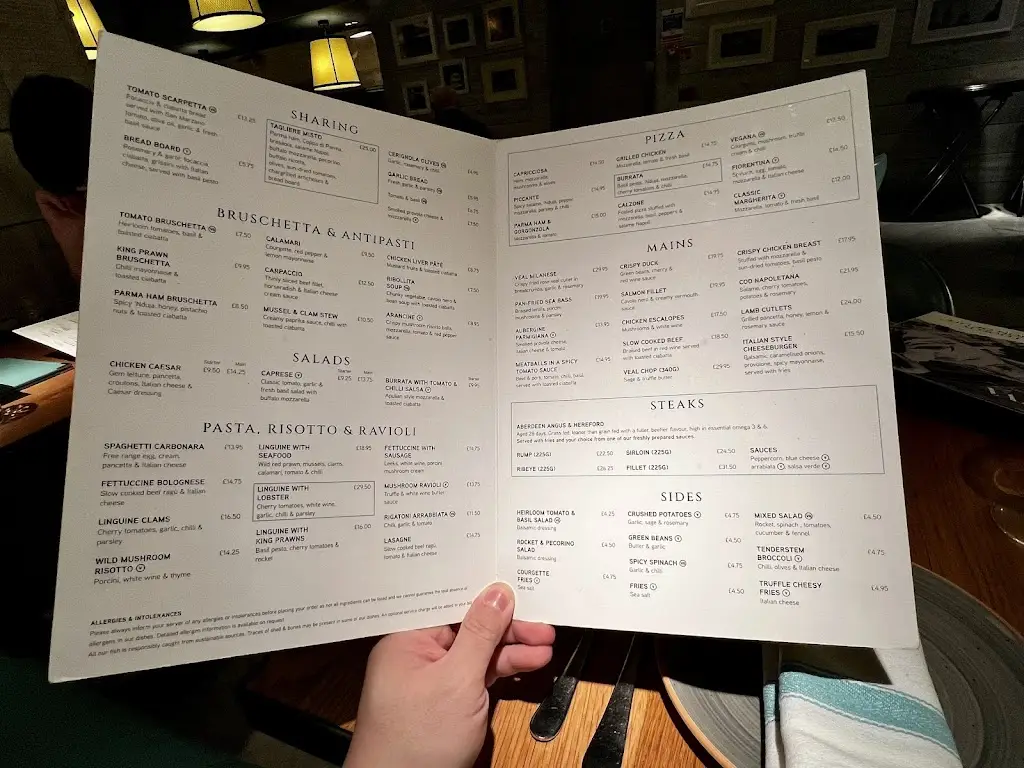 SHARING
TOMATO SCARPETTA
Focaccia & ciabatta bread
served with San Marzano
tomato, olive oil, garlic & fresh
basil sauce
£13.25
BREAD BOARD
Rosemary & garlic focaccia
ciabatta, grissini with Italian
cheese, served with basil pesto
£5.75
TAGLIERE MISTO
£25.00
Parma ham, Coppa di Parma,
bresaola, salame Napoli,
buffalo mozzarella, pecorino,
buffalo ricotta,
olives, sun-dried tomatoes,
chargrilled artichokes &
bread board
CERIGNOLA OLIVES
Garlic, rosemary & chilli
£4.95
GARLIC BREAD
Fresh garlic & parsley
£5.95
Tomato & basil
£6.75
Smoked provola cheese &
mozzarella
£7.50
BRUSCHETTA & ANTIPASTI
TOMATO BRUSCHETTA
£7.50
Heirloom tomatoes, basil &
toasted ciabatta
KING PRAWN
BRUSCHETTA
£9.95
Chilli mayonnaise &
toasted ciabatta
PARMA HAM BRUSCHETTA
£8.50
Spicy 'Nduja, honey, pistachio
nuts & toasted ciabatta
CALAMARI
Courgette, red pepper &
lemon mayonnaise
£9.50
CARPACCIO
Thinly sliced beef fillet,
horseradish & Italian cheese
cream sauce
£12.50
MUSSEL & CLAM STEW
Creamy paprika sauce, chilli with
toasted ciabatta
£10.50
CHICKEN LIVER PÂTÉ
Mustard fruits & toasted ciabatta
£8.75
RIBOLLITA
SOUP
£7.50
Chunky vegetable, cavolo nero &
bean soup with toasted ciabatta
ARANCINI
£8.95
Crispy mushroom risotto balls,
mozzarella, tomato & red pepper
sauce
SALADS
CHICKEN CAESAR
Starter £9.50 Main £14.25
Gem lettuce, pancetta,
croutons, Italian cheese &
Caesar dressing
CAPRESE
Starter £9.25 Main £13.75
Classic tomato, garlic &
fresh basil salad with
buffalo mozzarella
BURRATA WITH TOMATO &
CHILLI SALSA
Apulian style mozzarella &
toasted ciabatta
Starter £9.95
PASTA, RISOTTO & RAVIOLI
SPAGHETTI CARBONARA
£13.95
Free range egg, cream,
pancetta & Italian cheese
FETTUCCINE BOLOGNESE
£14.75
Slow cooked beef ragù & Italian
cheese
LINGUINE CLAMS
£16.50
Cherry tomatoes, garlic, chilli &
parsley
WILD MUSHROOM
RISOTTO
£14.25
Porcini, white wine & thyme
LINGUINE WITH
SEAFOOD
£18.95
Wild red prawn, mussels, clams,
calamari, tomato & chilli
LINGUINE WITH
LOBSTER
£29.50
Cherry tomatoes, white wine,
garlic, chilli & parsley
LINGUINE WITH
KING PRAWNS
£16.00
Basil pesto, cherry tomatoes &
rocket
FETTUCCINI WITH
SAUSAGE
Leeks, white wine, porcini
mushroom cream
MUSHROOM RAVIOLI
£13.75
Truffle & white wine butter
sauce
RIGATONI ARRABBIATA
£11.50
Chilli, garlic & tomato
LASAGNE
£14.75
Slow cooked beef ragù,
tomato & Italian cheese
ALLERGIES & INTOLERANCES
Please always inform your server of any allergies or intolerances before placing your order as not all ingredients can be listed and we cannot guarantee the total absence of
allergens in our dishes. Detailed allergen information is available on request.
All our fish is responsibly caught from sustainable sources. Traces of shell & bones may be present in some of our dishes. An optional service charge will be added to your bill
PIZZA
CAPRICCIOSA
£14.50
Ham, mozzarella,
mushrooms & olives
PICCANTE
£14.95
Spicy salame, 'Nduja, pepper,
mozzarella, parsley & chilli
PARMA HAM &
GORGONZOLA
£15.00
Mozzarella & tomato
GRILLED CHICKEN
£14.75
Mozzarella, tomato & fresh basil
BURRATA
£14.75
Basil pesto, 'Nduja, mozzarella,
cherry tomatoes & chilli
CALZONE
£14.95
Folded pizza stuffed with
mozzarella, basil, peppers &
salame Napoli
VEGANA
£13.50
Courgettes, mushroom, truffle
cream & chilli
FIORENTINA
£14.50
Spinach, egg, tomato,
mozzarella & Italian cheese
CLASSIC
MARGHERITA
£12.00
Mozzarella, tomato & fresh basil
MAINS
VEAL MILANESE
£29.95
Crispy fried rose veal cutlet in
breadcrumbs, garlic & rosemary
PAN-FRIED SEA BASS
£19.95
Braised lentils, porcini
mushrooms & parsley
AUBERGINE
PARMIGIANA
£13.95
Smoked provola cheese,
Italian cheese & tomato
MEATBALLS IN A SPICY
TOMATO SAUCE
£14.95
Beef & pork, tomato, chilli, basil,
served with toasted ciabatta
CRISPY DUCK
£19.75
Green beans, cherry &
red wine sauce
SALMON FILLET
£19.95
Cavolo nero & creamy vermouth
sauce
CHICKEN ESCALOPES
£17.50
Mushrooms & white wine
SLOW COOKED BEEF
£18.50
Braised beef in red wine served
with toasted ciabatta
VEAL CHOP (340G)
£29.95
Sage & truffle butter
CRISPY CHICKEN BREAST
£17.95
Stuffed with mozzarella &
sun-dried tomatoes, basil pesto
COD NAPOLETANA
£21.95
Salame, cherry tomatoes,
potatoes & rosemary
LAMB CUTLETS
£24.00
Grilled pancetta, honey, lemon &
rosemary sauce
ITALIAN STYLE
CHEESEBURGER
£15.50
Balsamic caramelised onions,
provolone, spicy mayonnaise,
served with fries
STEAKS
ABERDEEN ANGUS & HEREFORD
Aged 28 days. Grass fed, leaner than grain fed with a fuller, beefier flavour, high in essential omega 3 & 6.
Served with fries and your choice from one of our freshly prepared sauces.
RUMP (225G) £22.50
RIBEYE (225G) £26.25
SIRLOIN (225G) £24.50
FILLET (225G) £31.50
SAUCES
Peppercorn, blue cheese,
arrabiata, salsa verde
SIDES
HEIRLOOM TOMATO &
BASIL SALAD
£4.25
Balsamic dressing
ROCKET & PECORINO
SALAD
£4.50
Balsamic dressing
COURGETTE
FRIES
£4.75
Sea salt
CRUSHED POTATOES
£4.75
Garlic, sage & rosemary
GREEN BEANS
£4.50
Butter & garlic
SPICY SPINACH
£4.75
Garlic & chilli
FRIES
£4.50
Sea salt
MIXED SALAD
£4.50
Rocket, spinach, tomatoes,
cucumber & fennel
TENDERSTEM
BROCCOLI
£4.75
Chilli, olives & Italian cheese
TRUFFLE CHEESY
FRIES
£4.95
Italian cheese